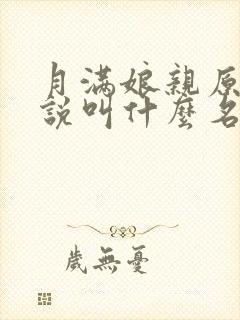 月滿娘親原
說叫什麼名
歲無憂